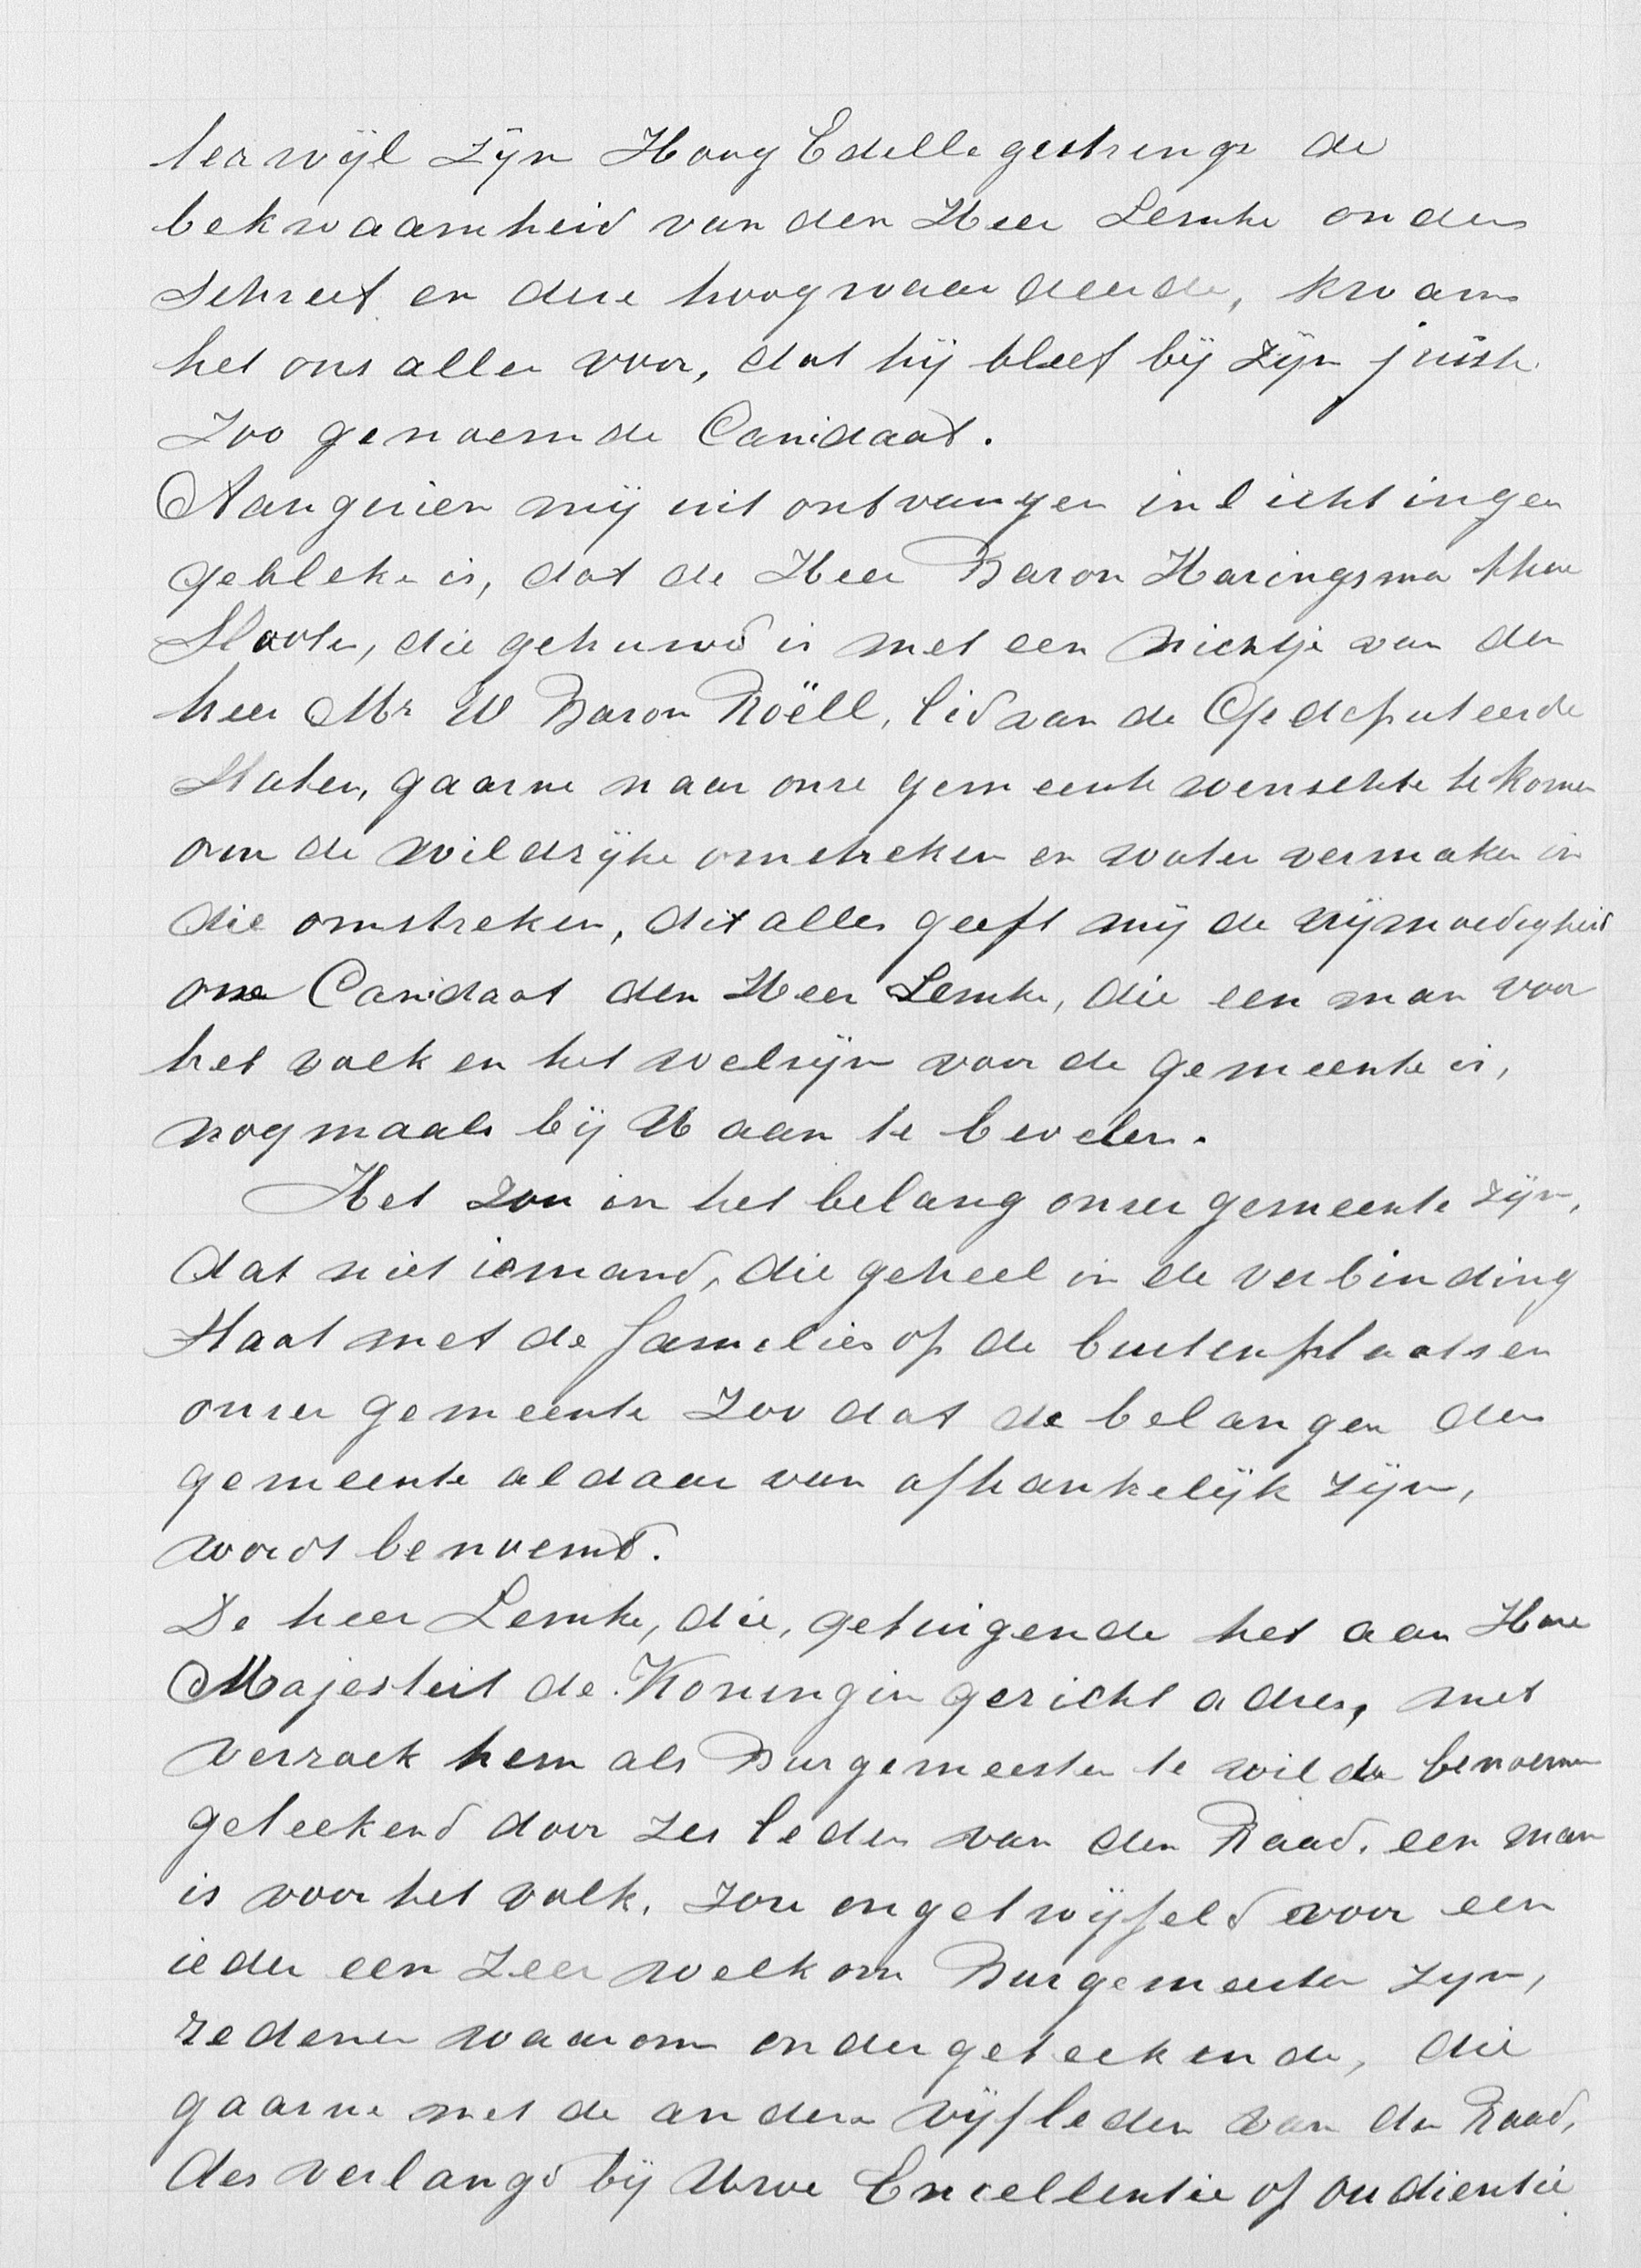 terwijl Zijn Hoog Edellegestrenge de
bekwaamheid van den Heer Lemke onder
schreef en deze hoogwaardeerde, kwam
het ons allen voor, dat hij bleef bij zijn juist
zoo genoemde Canidaat.
Aangezien mij uit ontvangen inlichtingen
gebleken is, dat de Heer Baron Haringsma thoe
Slooten, die gehuwd is met een nichtje van den
heer Mr W Baron Röell, lid van de Gedeputeerde
Staten, gaarne naar onze gemeente wenschte te komen
om de wildrijke omstreken en water vermaken in
die omstreken, dit alles geeft mij de vrijmoedigheid
onze Canidaat den Heer Lemke, die een man voor
het volk en het welzijn voor de gemeente is,
nogmaals bij U aan te bevelen.
Het zou in het belang onzer gemeente zijn,
dat niet iemand, die geheel in de verbinding
staat met de families op de buitenplaatsen
onzer gemeente zoo dat de belangen der
gemeente aldaar van afhankelijk zijn,
wordt benoemd.
De heer Lemke, die, getuigende het aan Hare
Majesteit de Koningin gericht adres, met
verzoek hem als Burgemeester te wilde benoemen
geteekend door zes leden van den Raad, een man
is voor het volk, zou ongetwijfeld voor een
ieder een zeer welkom Burgemeester zijn,
redenen waarom ondergeteekende, die
gaarne met de andere vijf leden van den Raad,
des verlangd bij Uwe Excellentie of audientie